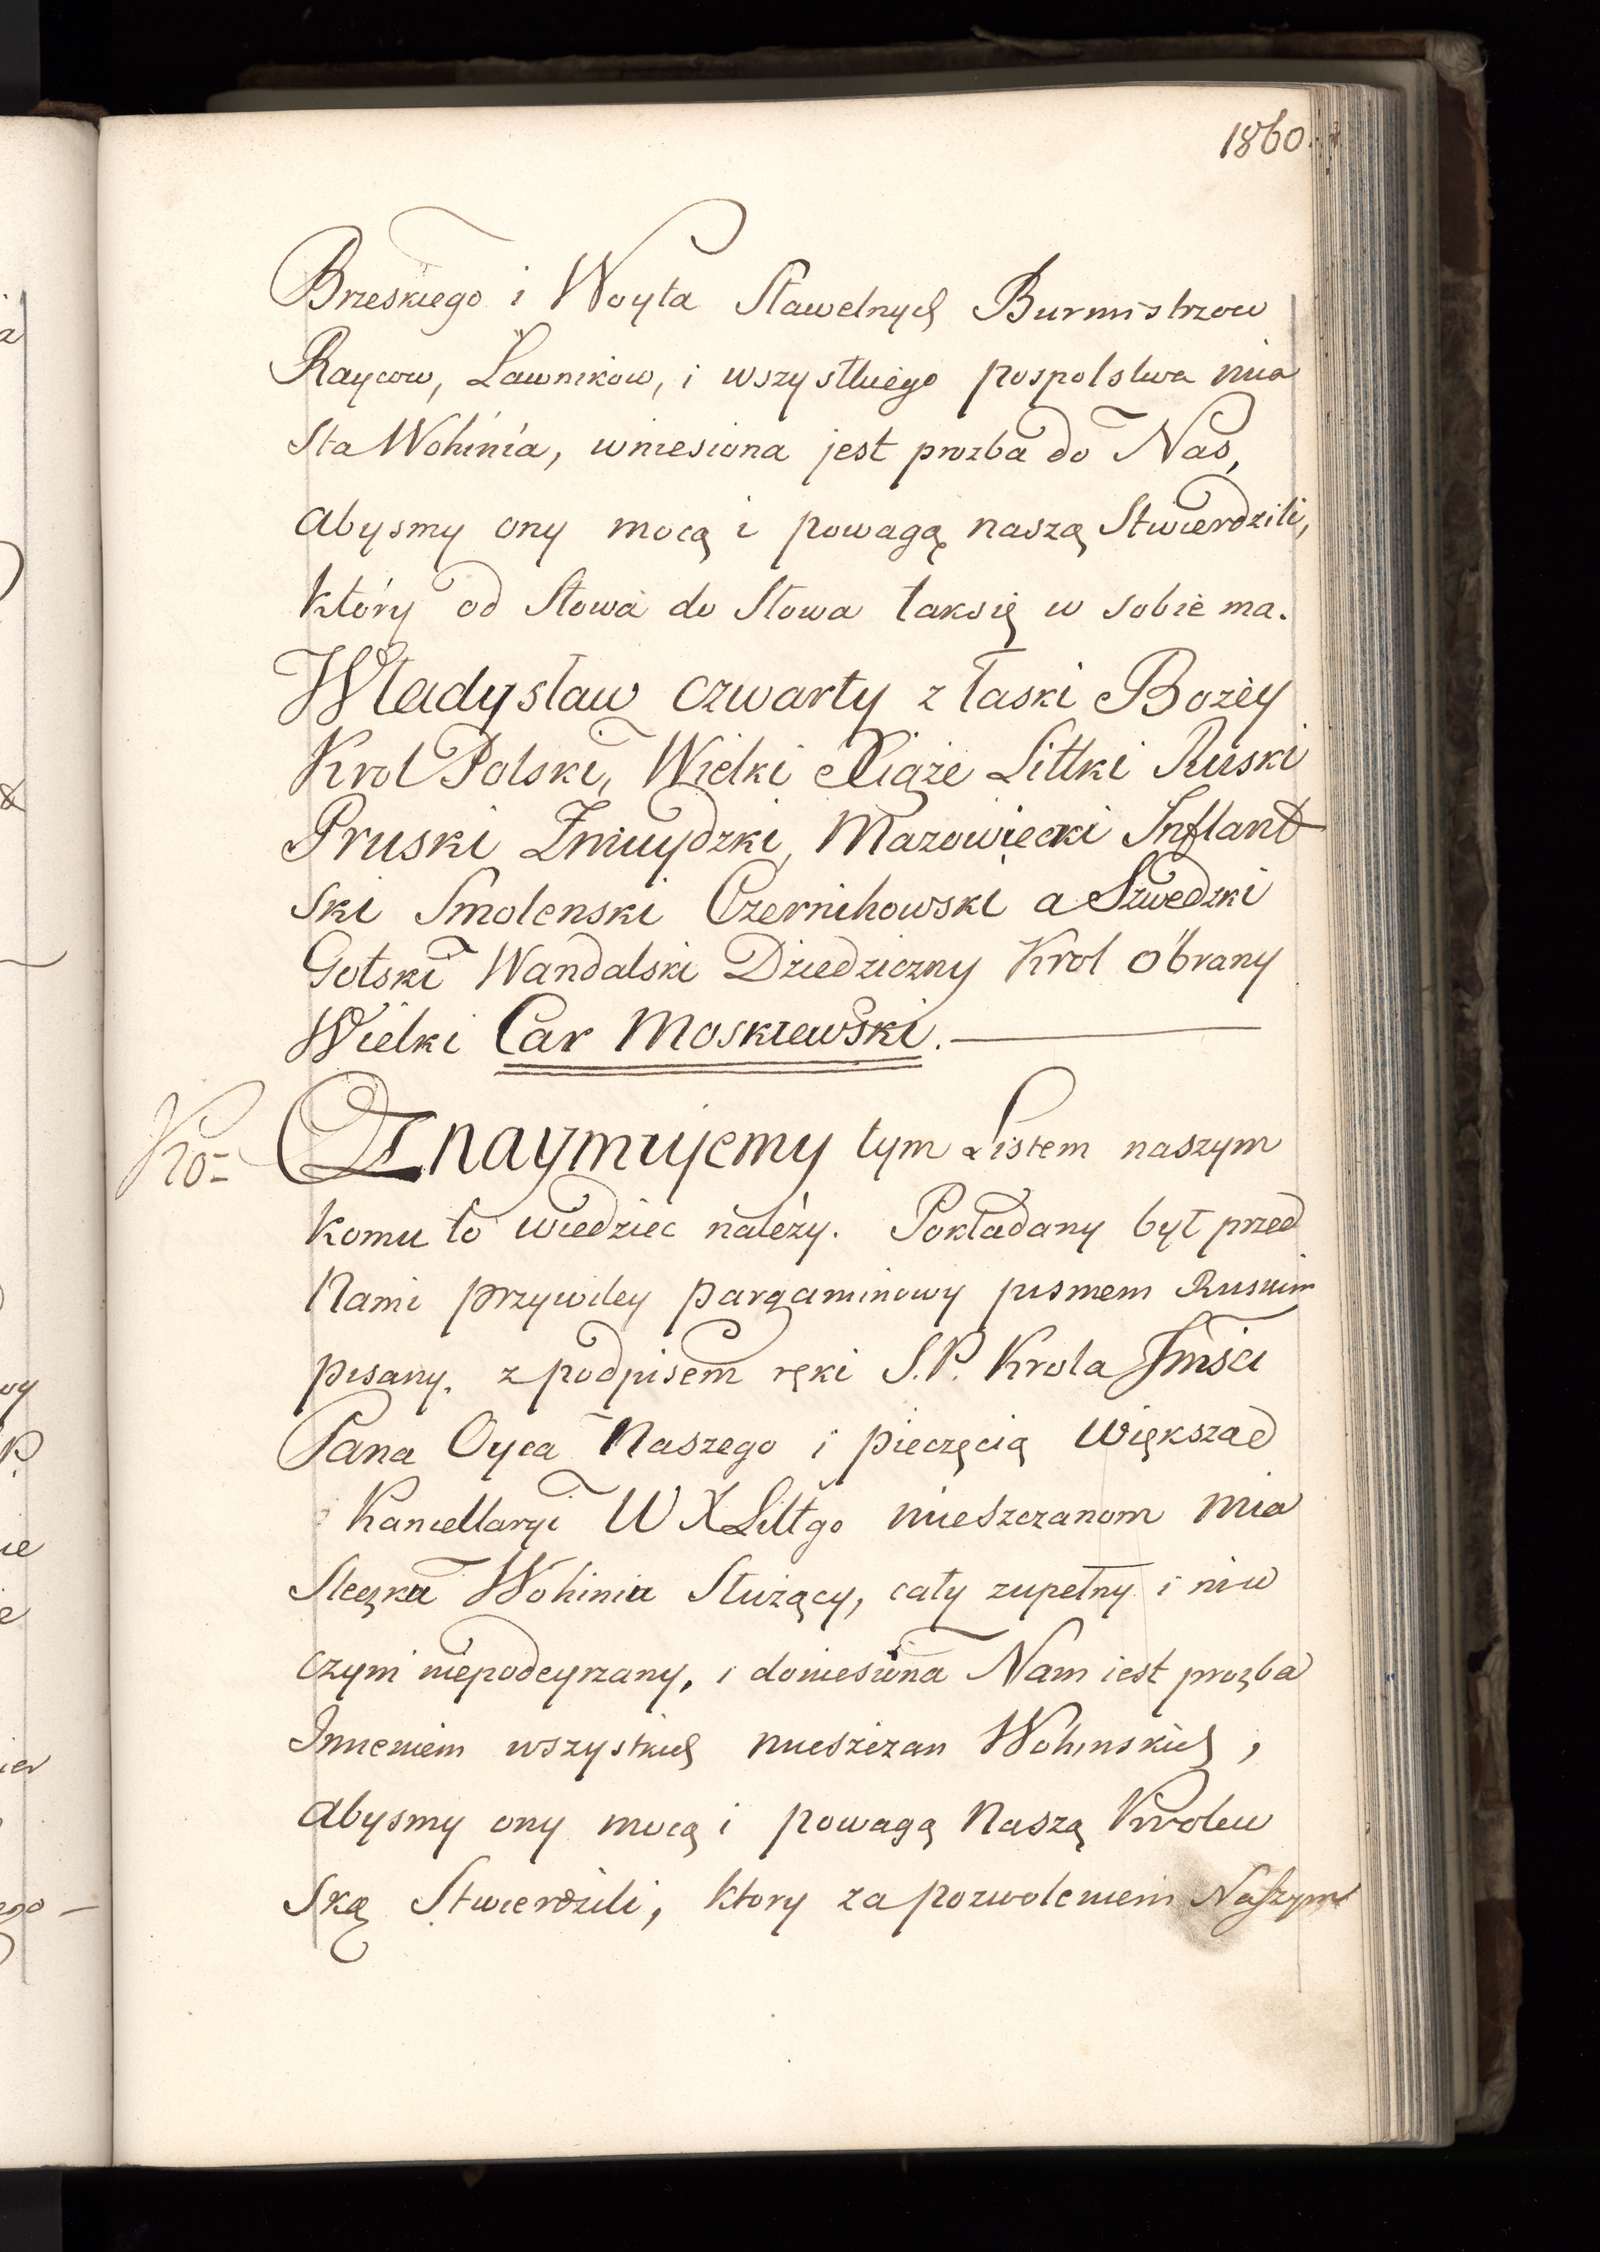 1860.
Brzeskiego i Woyta Sławetnych Burmistrzow
Raycow, Ławnikow, i wszystkiego pospolstwa mia
sta Wohinia, wniesiona jest prozba do Nas,
abysmy ony mocą i powagą naszą Stwierdzili,
który od Słowa do Słowa taksię w sobie ma.
Władysław czwarty z łaski Bożey
Krol Polski, Wielki Xiąże Littki Ruski
Pruski Żmuydzki, Mazowiecki Inflant
ski Smolenski Czernihowski a Szwedzki
Gotski Wandalski Dziedziczny Krol obrany
Wielki Car Moskiewski.
Oznaymujemy tym Listem naszym
Ko=
komu to wiedziec należy. Pokładany był przed
Nami przywiley pargaminowy pismem Ruskim
pisany. z podpisem ręki S.P. Krola Jmści
Pana Oyca Naszego i pieczęcią większą
Kancellaryi W X Littgo mieszczanom mia
steczka Wohinia Służący, cały zupełny i niw
czym niepodeyrzany, i doniesiona Nam iest prozba
Imieniem wszystkich mieszczan Wohinskich,
abysmy ony mocą i powagą Naszą Krolew
ską Stwierdzili, ktory za pozwoleniem Naszym